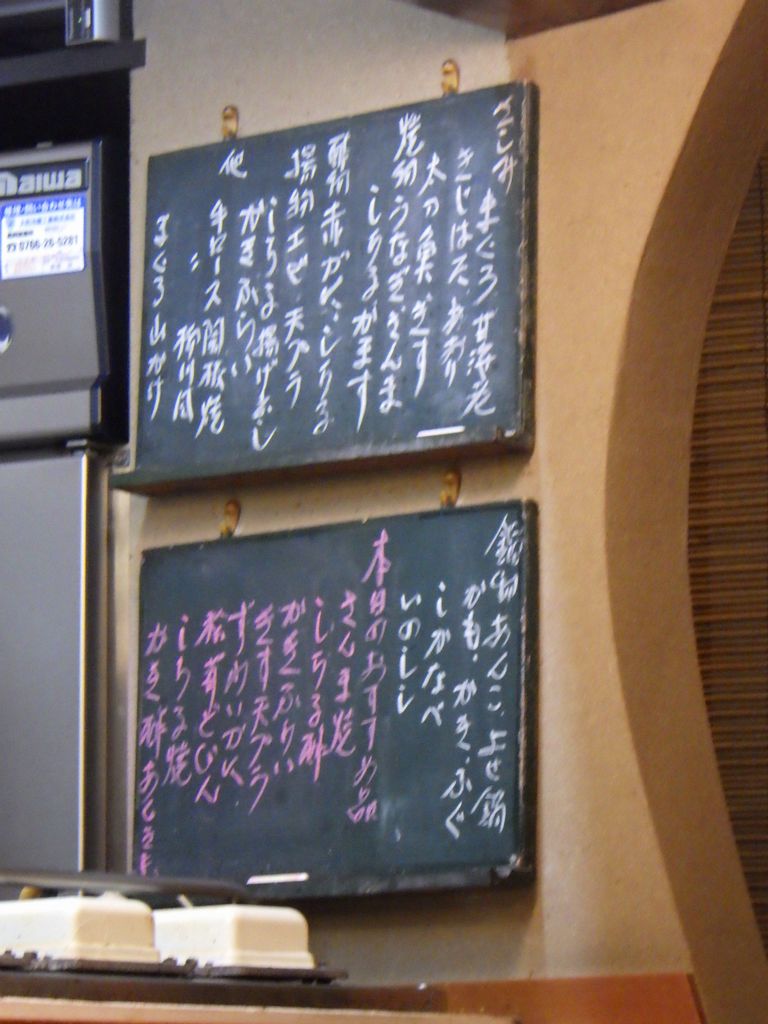 さしみ まぐろ 甘海老
きじはた あおり
太刀魚 きす
焼物 うなぎ さんま
しらる かます
酢物 赤がに しらる
揚物 エビ 天プラ
しらる 揚げおし
かきふらい
他 牛ロース 陶板焼
〃 柳川風
まぐろ山かけ
鍋物 あんこ よせ鍋
かも かき ふぐ
しかなべ
いのしし
本日のおすすめ品
さんま焼
しらる酢
かきふらい
きす天プラ
ずわいかに
松茸どびん
しらる焼
かき酢
Daiwa
☎0766-26-5281